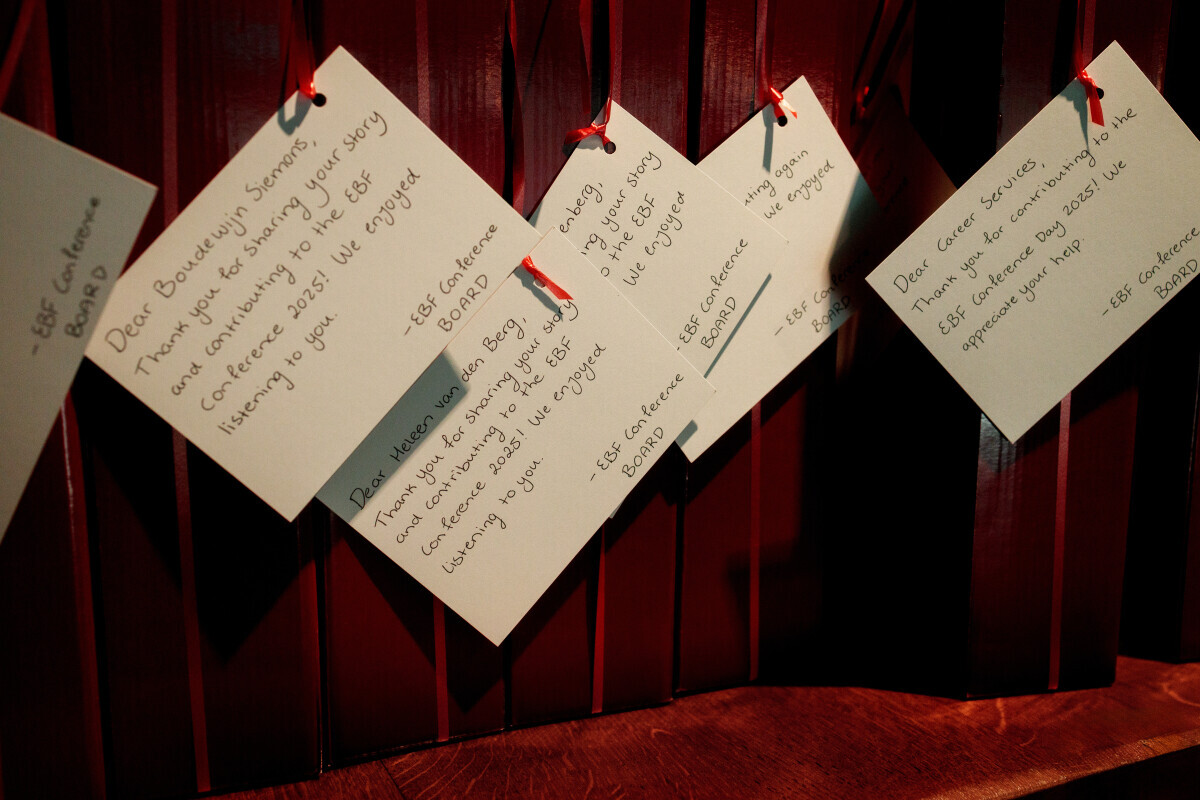 - EBF Conference
BOARD
Dear Boudewijn Siemons,
Thank you for sharing your story
and contributing to the EBF
Conference 2025! We enjoyed
listening to you.
- EBF Conference
BOARD
enberg,
ing your story
o the EBF
We enjoyed
EBF Conference
BOARD
Dear Heleen van den Berg,
Thank you for sharing your story
and contributing to the EBF
Conference 2025! We enjoyed
listening to you.
- EBF Conference
BOARD
uting again
We enjoyed
- EBF Conference
BOARD
Dear Career Services,
Thank you for contributing to the
EBF Conference Day 2025! We
appreciate your help.
- EBF Conference
BOARD